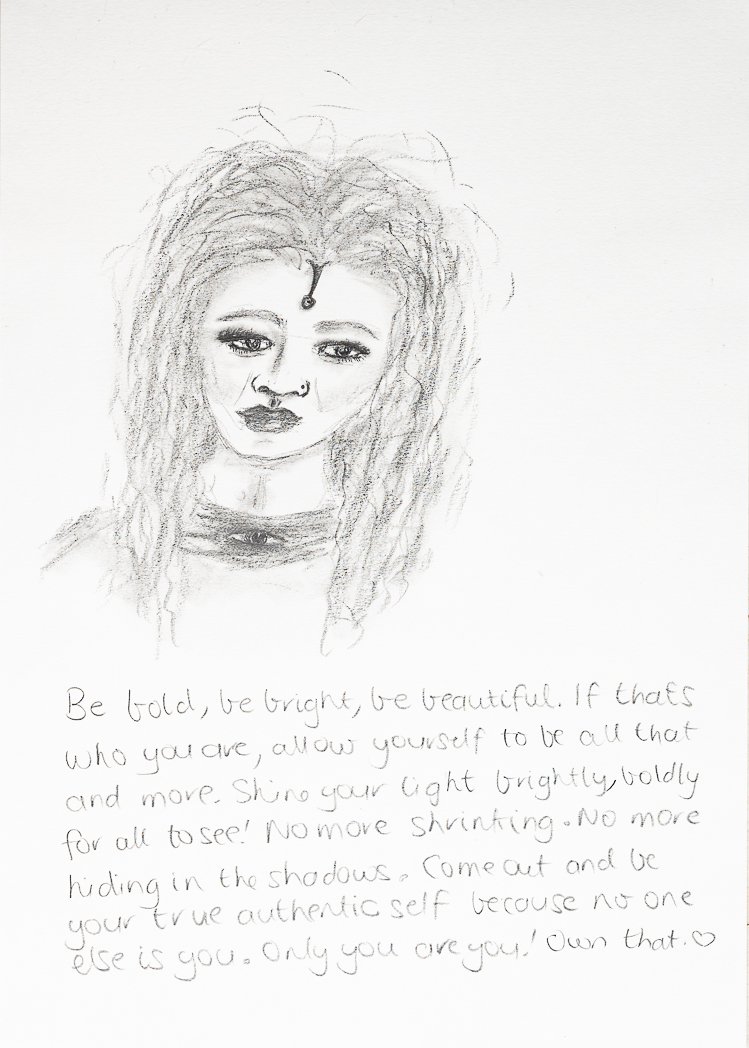 Be bold, be bright, be beautiful. If thats
who you are, allow yourself to be all that
and more. Shine your light brightly, boldly
for all to see! No more shrinking. No more
hiding in the shadows. Come out and be
your true authentic self because no one
else is you. Only you are you! Own that. ♡